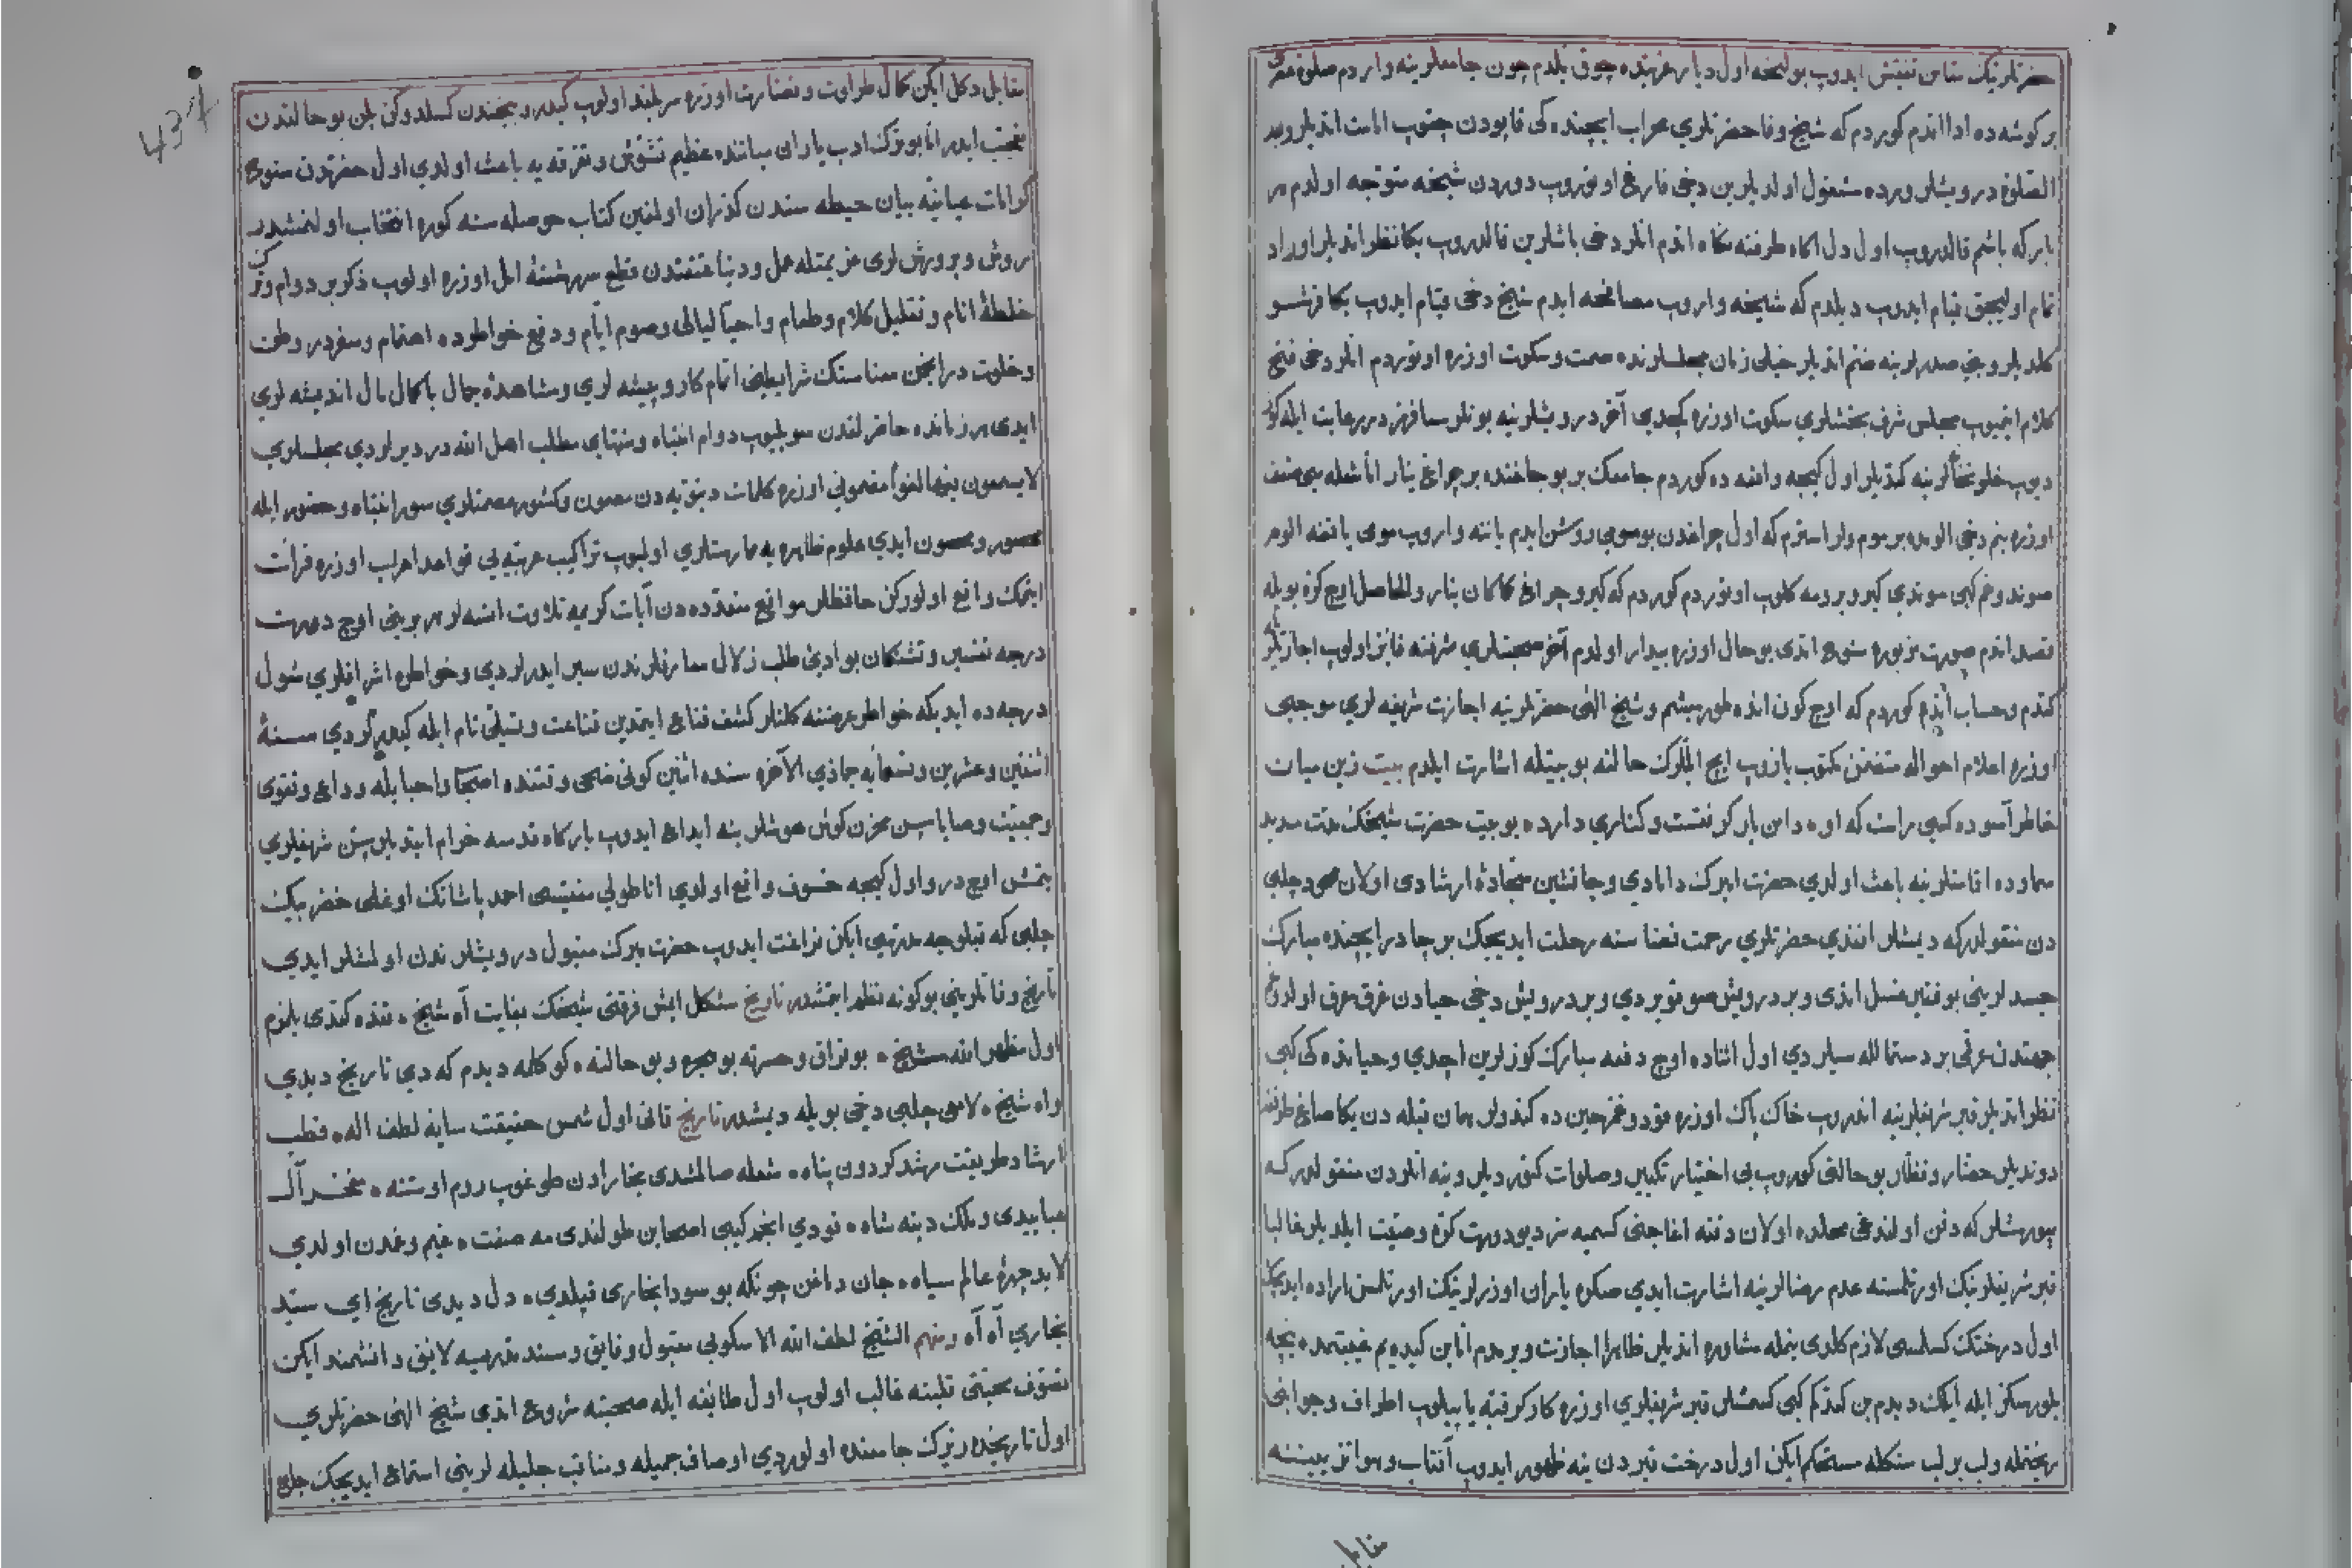 حضرتلرینك متاسن تفتیش ایدوب بولیجغه اول دیار غربتده چوق یلدم چون جامعلرینه واردم صلوة عصری
بر کوشه ده ادا اتدم کوردم که شیخ وفا حضرتلری محراب ایچنده کی قاپودن چقوب امامت اتدیلر و بعد
الصلوة درویشلر ورده مشغول اولدیلر بن دخی فارغ اوتوروب دوردن شیخه متوجه اولدم هر
بار که باشم قالدروب اول دل اکاه طرفنه نکاه اتدم انلر دخی باشلرین قالدروب بکا نظر اتدیلر اوراد
تمام اولیجق قیام ایدوب دیلدم که شیخه واروب مصافحه ایدم شیخ دخی قیام ایدوب بکا قرشو
کلدیلر و بنی صدرلرینه ضم اتدیلر خیلی زمان مجلسلرنده صمت وسکوت اوزره اوتوردم انلر دخی فتح
کلام ایتمیوب مجلس شرف بخشلری سکوت اوزره کچدی آخر درویشلرینه بونلر مسافردر رعایت ایله کوز
دیوب خلوتخانه لرینه کتدیلر اول کیجه واقعه ده کوردم جامعك بر بوجاغنده بر چراغ ینار اما شعله سی ضعف
اوزره بنم دخی المده بر موم وار استرم که اول چراغدن بو مومی روشن ایدم یاننه واروب مومی یاقنه الور
صوند و خم کبی سوندی کیرو یرومه کلوب اوتوردم کوردم که کیرو چراغ کاکان ینار والحاصل اوچ کره بویله
قصد اتدم صورت مزبوره سنوح اتدی بو حال اوزره بیدار اولدم آخر صحبتلری شرفنه فایز اولوب اجازتلر
کتدم وحساب ایتدم کوردم که اوچ کون انده طورمشم وشیخ الهی حضرتلرینه اجازت شریفه لری موجبی
اوزره اعلام احواله متضمن مکتوب یازوب ایچ ایللرك حالنه بو بیتله اشارت ایلدم بیت زین میانه
خاطر آسوده کسی راست که او ٭ دامن یار کرفتست وکناری دارد ٭ بو بیت حضرت شیخك مدت مدید
سماوده اقامتلرینه باعث اولدی حضرت امیرك دامادی وجانشین سجاده ارشادی اولان محمود چلبی
دن منقولدر که دیمشلر افندی حضرتلری رحمت فضا سنه رحلت ایدیجك بر چادر ایچنده مبارك
جسدلرینی بو فقیر غسل اتدی و بر درویش صو قویردی و بر درویش دخی حیادن غرق عرق اولدوغی
جهتدن عرقی بر دستمالله سیلردی اول اثناده اوچ دفعه مبارك کوزلرین اچدی وحیاتده کی کبی
نظر اتدیلر قبر شریفلرینه اندروب خاك پاك اوزره قودوغمز حین ده کندولر همان قبله دن یکا صاغ طرفنه
دوندیلر حضار ونظار بو حالتی کوروب بی اختیار تکبیر وصلوات کتوردیلر وینه انلردن منقولدر که
بیورمشلر که دفن اولندوغی محلده اولان دفنه اغاجنی کسمیه سز دیو دورت کره وصیت ایلدیلر غالبا
قبر شریفلرینك اورتلمسنه عدم رضالرینه اشارت ایدی صکره یاران اوزرلرینك اورتلمسن اراده ایدیجك
اول درختك کسلمسی لازم کلدی بنمله مشاوره اتدیلر ظاهرا اجازت ویرمدم اما بن کیدهیم غیبتمده نیجه
بلورسکز ایله ایلك دیدم بن کتدکم کبی کسمشلر قبر شریفلری اوزره کارکرفته یا پیلوب اطراف وجوانبی
ریختمله ولب برلب سنکله مستحکم ایکن اول درخت قبردن ینه ظهور ایدوب آفتاب وهوا تربیتنه
مقابل
437
مقابل دکل ایکن کمال طراوت ونضارت اوزره سربلند اولوب کیدر و نیچندن کسلدوکن بلن بو حالندن
تعجب ایدر اما بو ترك ادب یاران میاننده عظیم تشویش وتفرقه یه باعث اولدی اول حضرتدن سنوح
کرامات عیانیه بیان حیطه سندن کذران اولمغین کتاب حوصله سنه کوره انتخاب اولنمشدر
روش وپرورش لری عزیمتله عمل ودنیا عنقندن قطع سررشته امل اوزره اولوب ذکر بر دوام وترك
خلطه انام وتقلیل کلام وطعام واحیاء لیالی وصوم ایام ودفع خواطرده اهتمام وسفر در وطن
وخلوت در انجمن معناسنك شرایطنی اتمام کار وپیشه لری ومشاهده جمال باکمال مال اندیشه لری
ایدی هر زمانده حاضرلندن سویلیوب دوام انتباه ومنتهای مطلب اهل الله در دیرلردی مجلسلری
لا یسمعون فیها لغوا مضمونی اوزره کلمات دنیویه دن مصون وکشور همتلری سور انتباه وحضور ایله
محصور ومحصون ایدی علوم ظاهره یه مهارتلری اولیوب تراکیب عربیه یی قواعد اعراب اوزره قرائت
ایتمك واقع اولورکن حافظلر مواقع متعدده دن آیات کریمه تلاوت اتسه لر هر برینی اوچ دورت
درجه تفسیر وتشنکان بوادئ طلب زلال معارفلرندن سیراب ایدرلردی وخواطره اشرافلری شول
درجه ده ایدیکه خواطر عرضنه کلنلر کشف قناع ایتمدین قناعت وتسلی تام ایله کیدرلردی سنه
اثنین وعشرین وتسعمایه جمادی الآخره سنده اثنین کونی ضحی وقتنده اصحاب واحبا ایله وداع وتقوی
وجمعیت وصایاسن مخزن کوش هوشلرینه ایداع ایدوب بارکاه قدسه خرام ایتدیلر سن شریفلری
یتمش اوچ در و اول کیجه خسوف واقع اولدی اناطولی مفتیسی احمد پاشانك اوغلی خضر بك
چلبی که قپلوجه مدرسی ایکن فراغت ایدوب حضرت میرك مقبول درویشلرندن اولمشلر ایدی
تاریخ وفاتلرینی بو کونه نظم ایتمشدر تاریخ مشکل ایش فرقتی شیخك بغایت آه شیخ ٭ قنده کتدی بلمزم
اول مظهر الله شیخ ٭ بو فراق وحسرته بو هجره وبو حالنه ٭ کوکلمه دیدم که دی تاریخ دیدی
واه شیخ ٭ لامعی چلبی دخی بویله دیمشدر تاریخ قانی اول شمس حقیقت سایه لطف اله ٭ قطب
ارشاد طریقت مرشد کردون پناه ٭ شعله صالمشدی بخارادن طوغوب روم اوستنه ٭ مفخر آل
عبایدی وملك دینه شاه ٭ قودی انجم کبی اصحابن طولندی مه صفت ٭ غیم وغمدن اولدی
لابد چهرۀ عالم سیاه ٭ جان داغن چونکه بو سودا بخاری قپلدی ٭ دل دیدی تاریخ ای سید
بخاری آه آه ومنهم الشیخ لطف الله الاسکوبی مقبول وفایق ومسند تدریسه لایق دانشمند ایکن
تصوف محبتی قلبنه غالب اولوب اول طائفه ایله صحبته شروع اتدی شیخ الهی حضرتلری
اول تاریخده زیرك جامعنده اولوردی اوصاف جمیله ومناقب جلیله لرینی استماع ایدیجك جامع